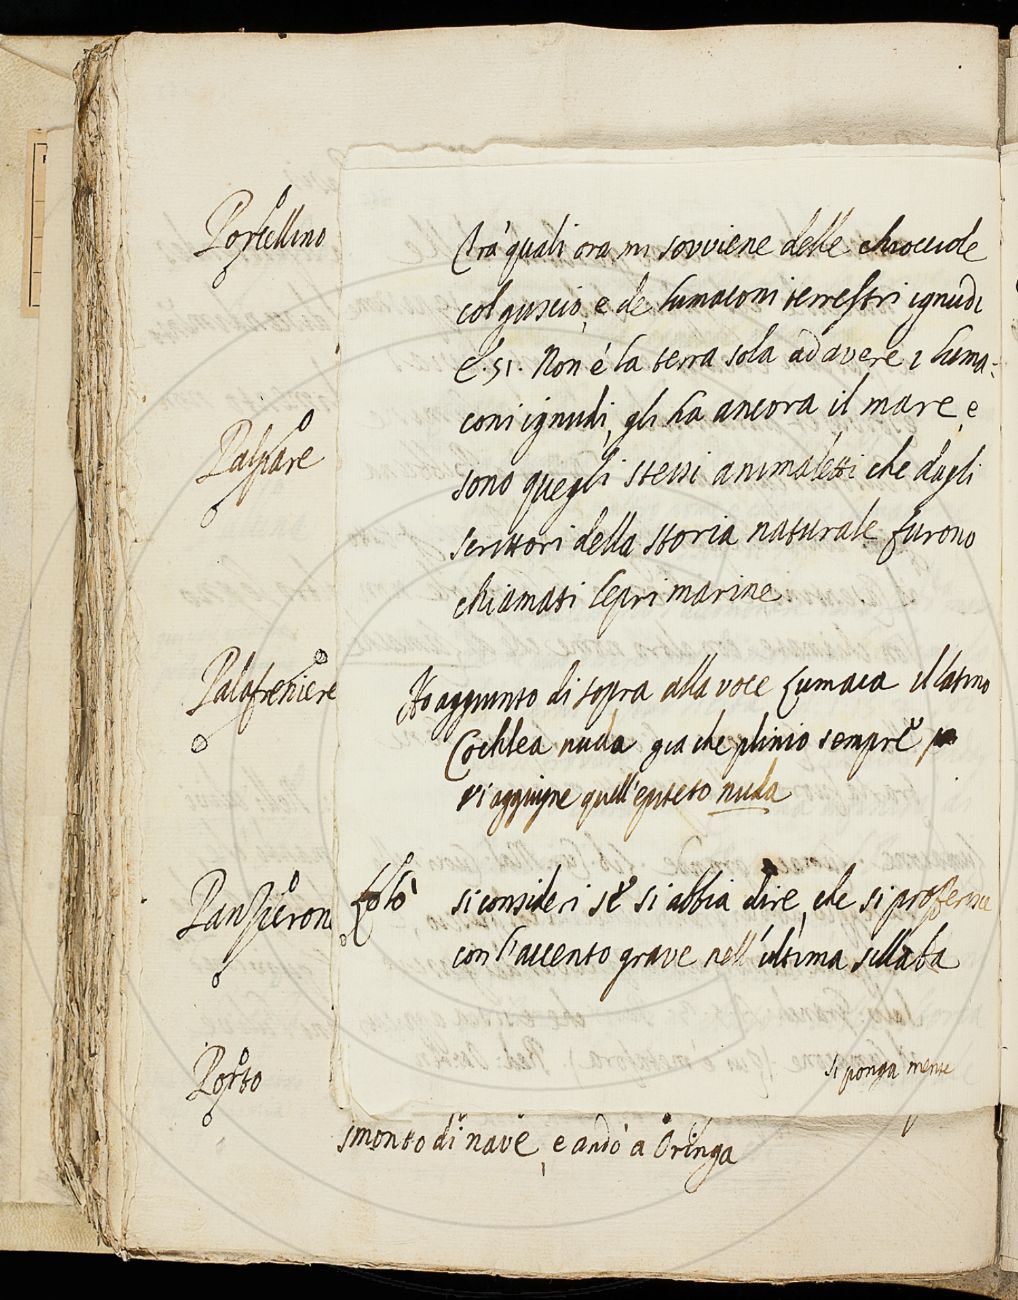 Porcellino
Tra' quali ora mi sovviene delle chiocciole
col guscio, e de lumaconi terrestri ignudi
E. 51. Non é la terra sola ad avere i luma-
coni ignudi, gli ha ancora il mare, e
Palpare
sono quegli stessi animaletti che dagli
scrittori della storia naturale furono
chiamati lepri marine
Palafreniere
Ho aggiunto di sopra alla voce Lumaca il latino
Cochlea nuda gia che plinio sempre
vi aggiugne quell'epiteto nuda
Panzieron
Lolò si consideri se si abbia dire, che si proferisce
con l'accento grave nell'ultima sillaba
Porto
si ponga mente
smonto di nave, e andò a Oringa